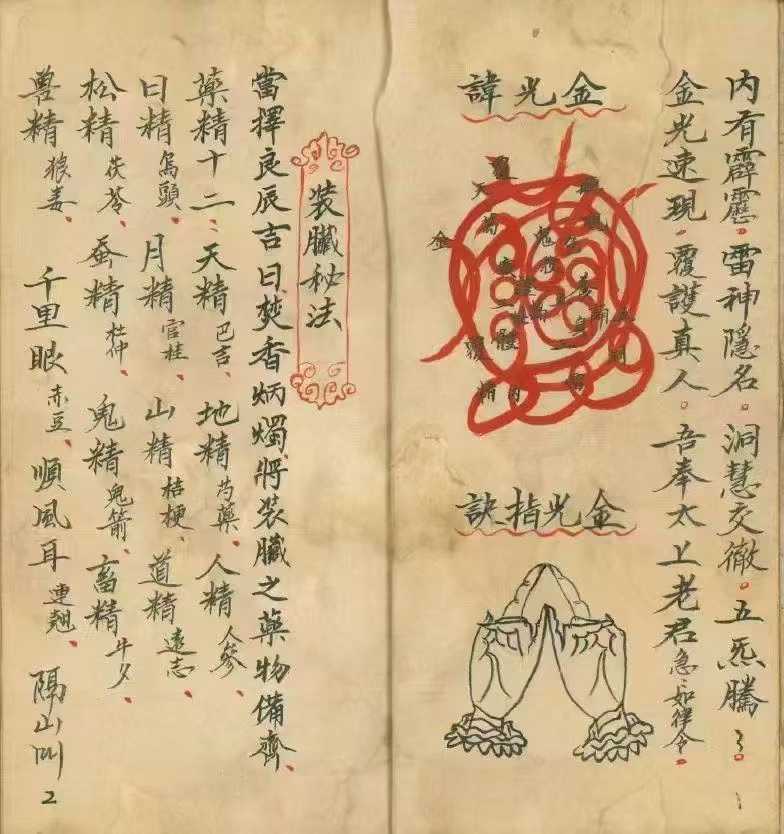 內有霹靂。雷神隱名。洞慧交徹。五炁騰々。
金光速現。覆護真人。吾奉太上老君急々如律令。
金光諱
金光指訣
1
裝臟秘法
當擇良辰吉日焚香炳燭將裝臟之藥物備齊、
藥精十二：天精巴吉、地精芍藥、人精人參、
日精烏頭、月精官桂、山精桔梗、道精遠志、
松精茯苓、蚕精杜仲、鬼精鬼箭、畜精牛夕、
兽精狼姜、千里眼赤豆、順風耳連翹、隔山叫
2